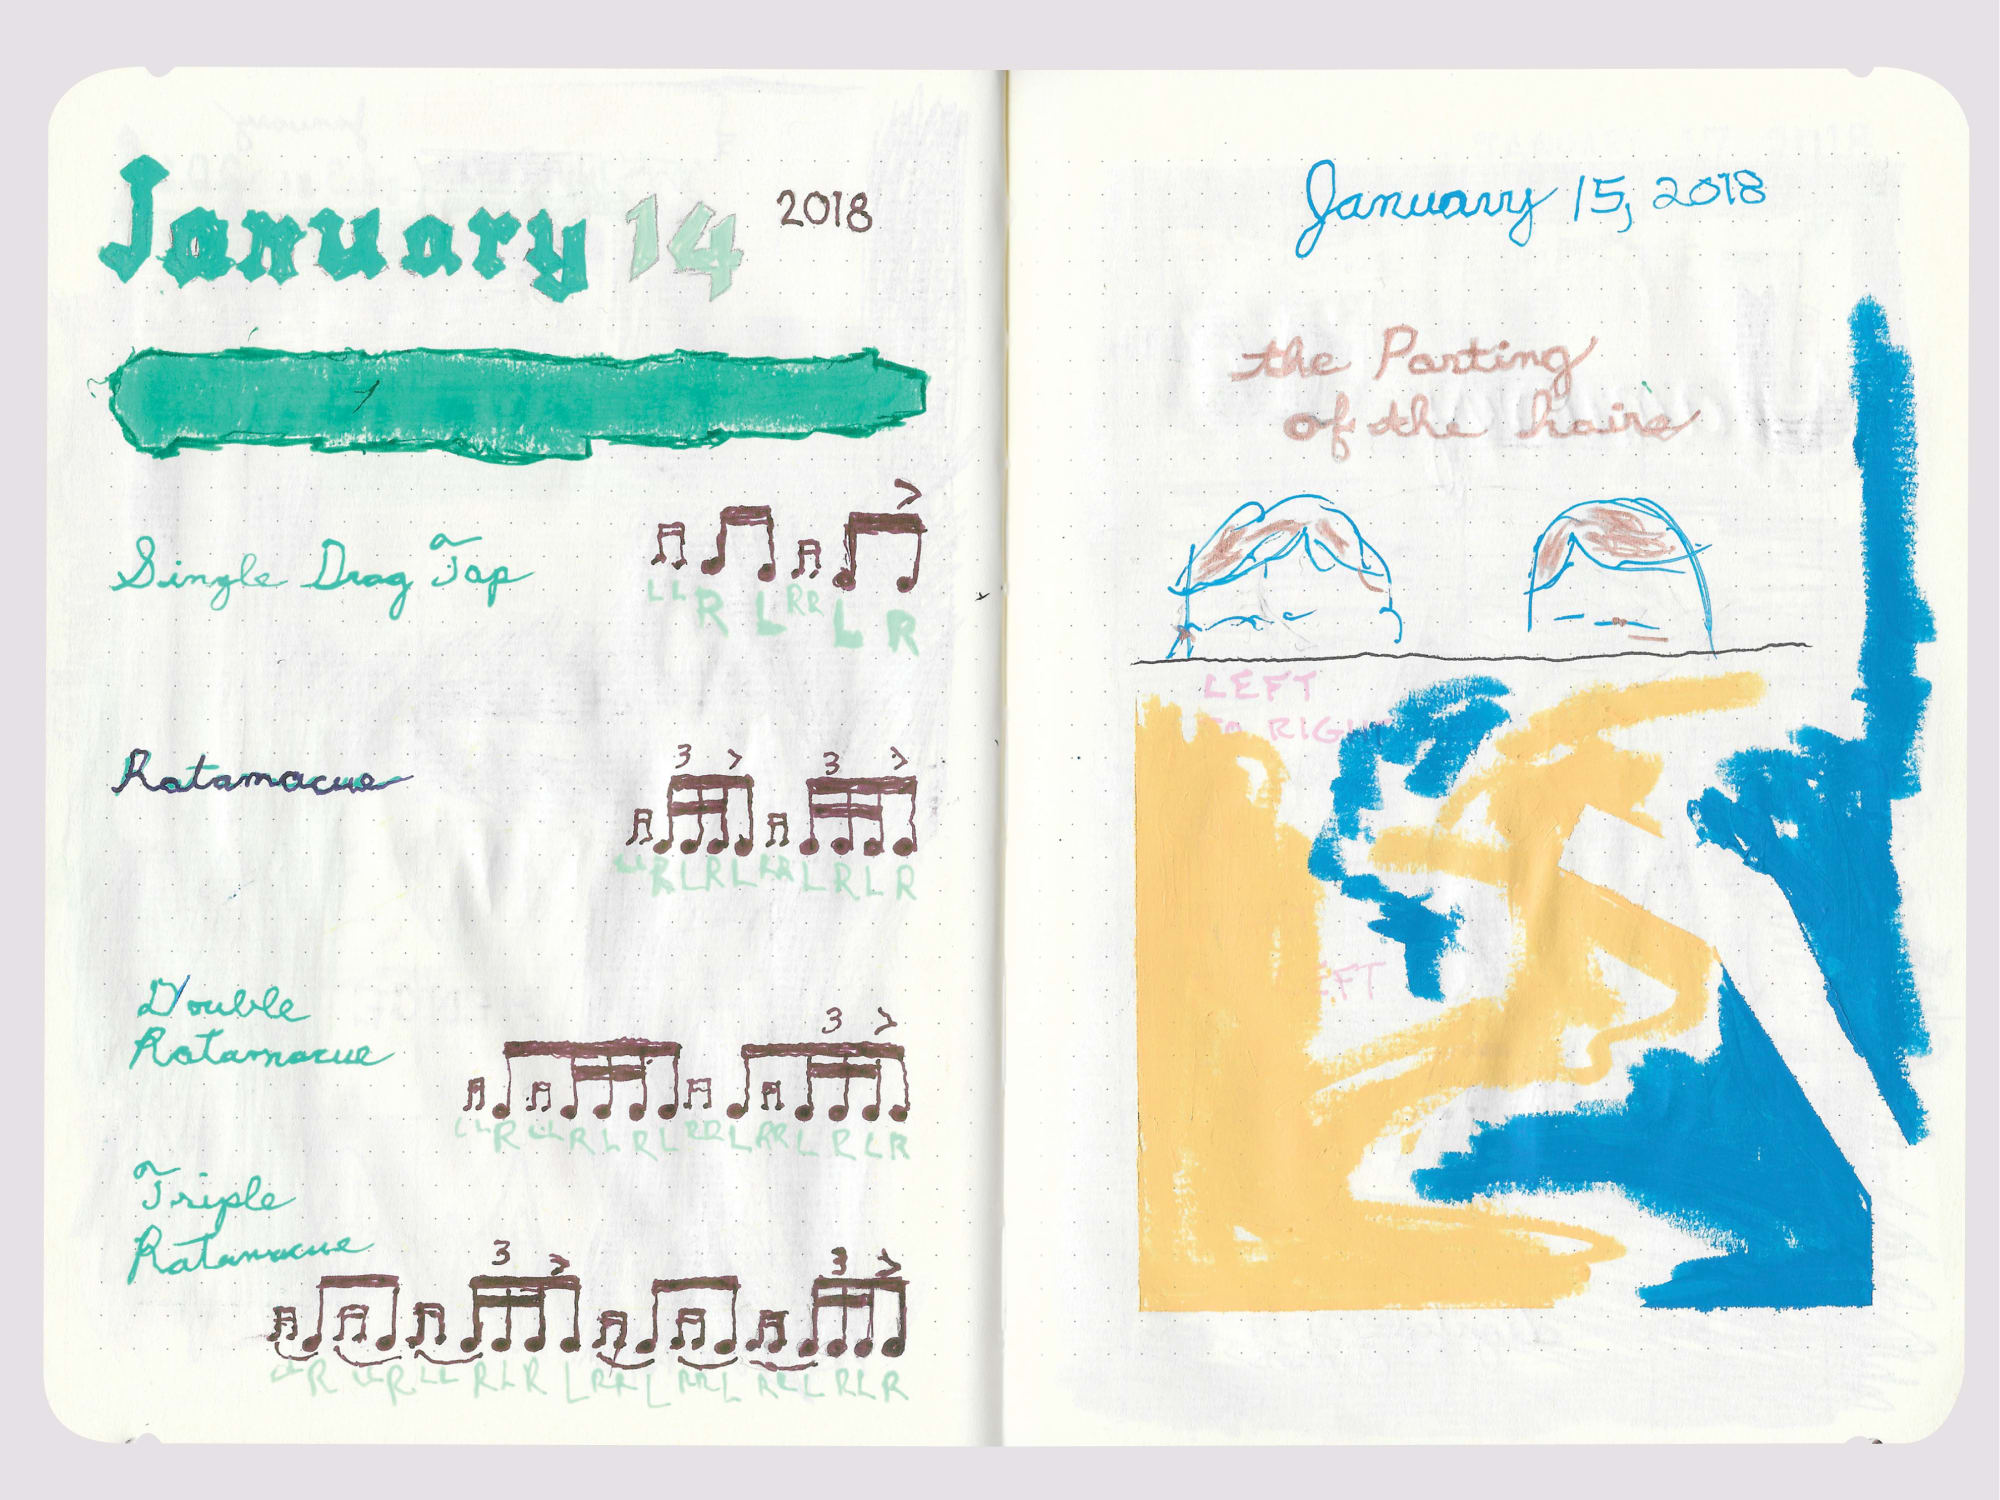 January 14 2018
Single Drag Tap
>
LL R L RR L R
Ratamacue
3 > 3 >
LL R L R L RR L R L R
Double
Ratamacue
3 >
LL R LL R L R L RR L RR L R L R
Triple
Ratamacue
3 > 3 >
January 15, 2018
the Parting
of the hairs
LEFT
TO RIGHT